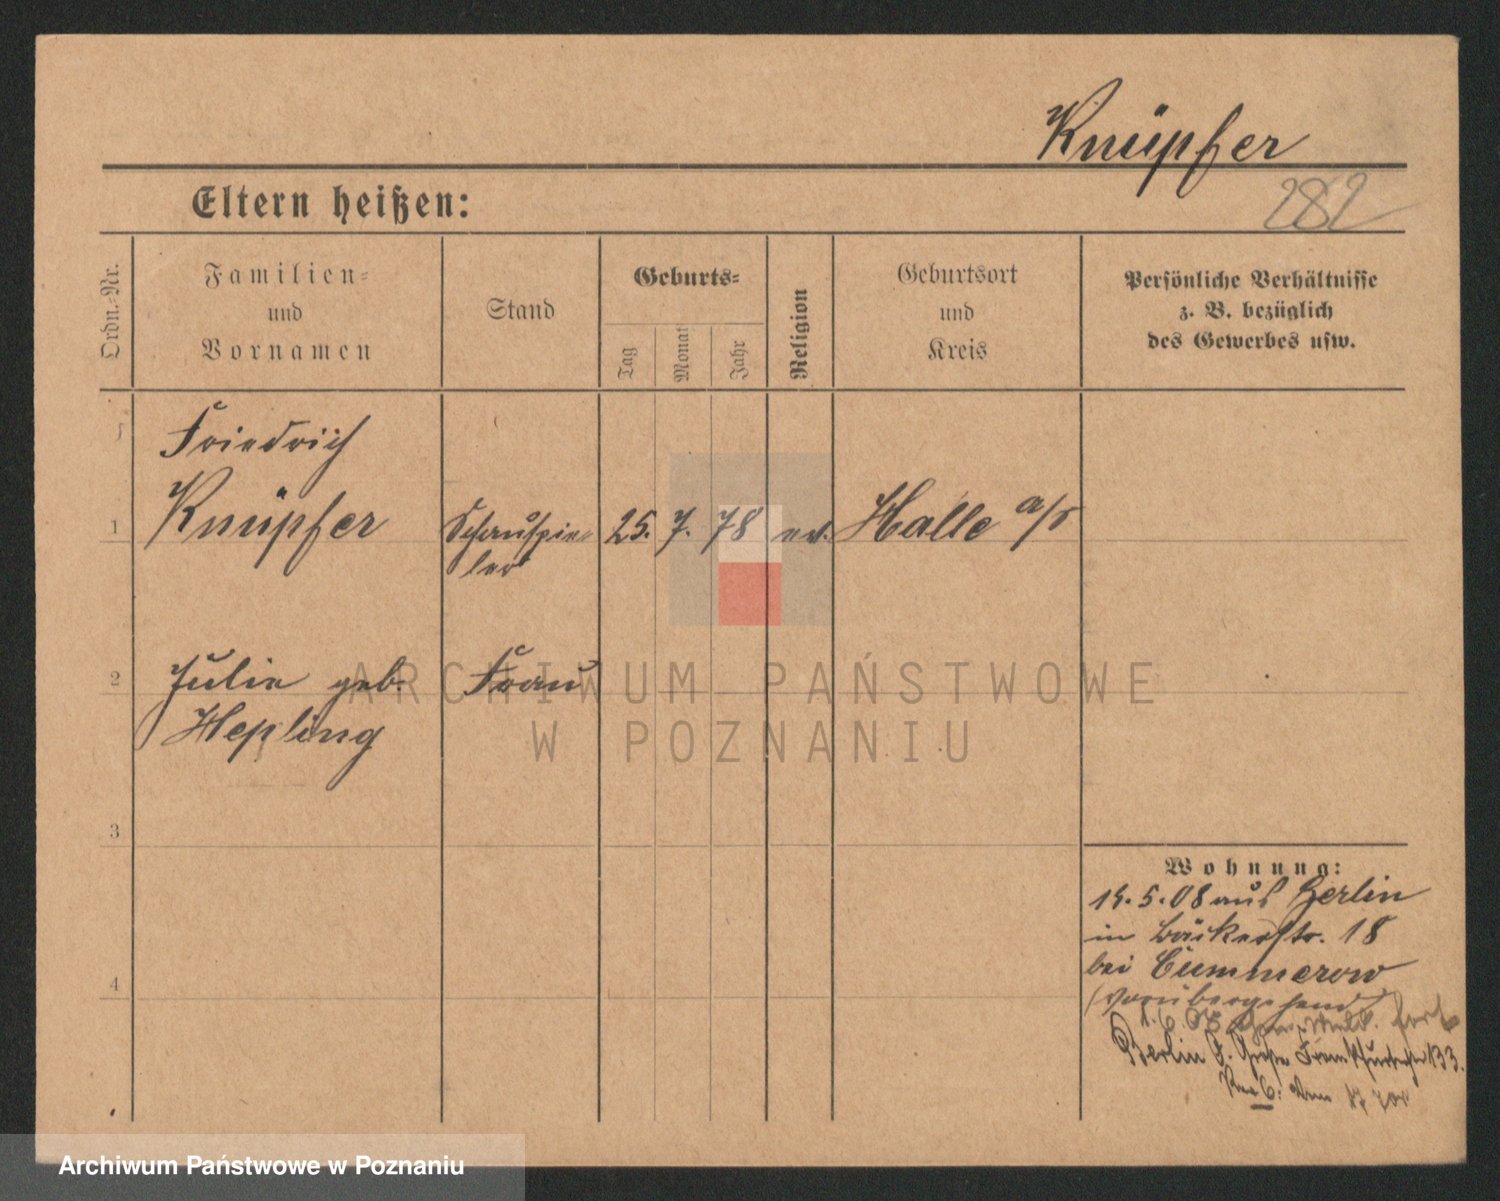 Knüpfer
282
Eltern heißen:
Ordn.-Nr.
Familien-
und
Vornamen
Stand
Geburts-
Tag
Monat
Jahr
Religion
Geburtsort
und
Kreis
Persönliche Verhältnisse
z. B. bezüglich
des Gewerbes usw.
Friedrich
1 Knüpfer Schauspie- 25. 7. 78 ev. Halle a/S
ler
2 Julie geb. Frau
Hepling
3
4
Wohnung:
14.5.08 aus Berlin
in Bäckerstr. 18
bei Cummerow
(vorübergehend)
Berlin O. Große Frankfurterstr 133.
ARCHIWUM PAŃSTWOWE
W POZNANIU
Archiwum Państwowe w Poznaniu